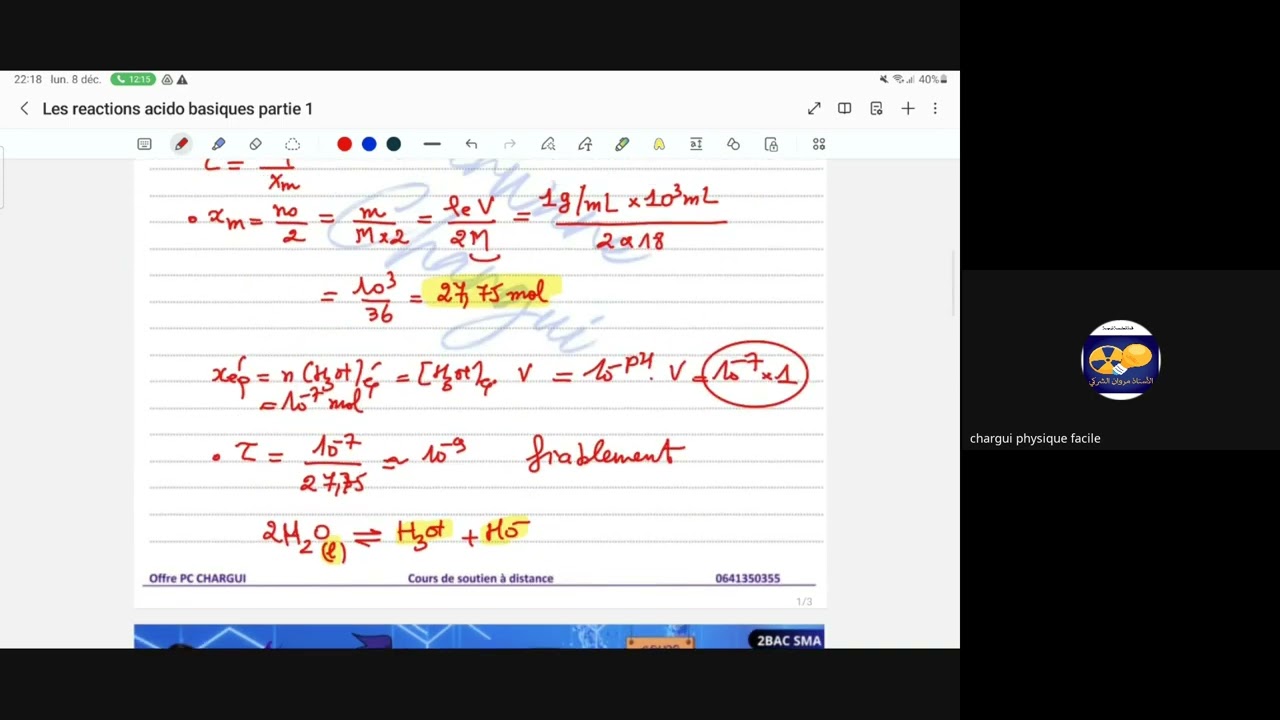 22:18 lun. 8 déc. 12:15 40%
Les reactions acido basiques partie 1
τ = / xm
• xm = n0/2 = m/M×2 = ρe V/2M = 1g/mL × 10³mL / 2×18
= 10³/36 = 27,75 mol
xéq = n(H3O+)éq = [H3O+]éq. V = 10^-pH. V = 10^-7 × 1
= 10^-7 mol
• τ = 10^-7/27,75 ≈ 10^-9 fiablement
2H2O(l) ⇌ H3O+ + HO-
Offre PC CHARGUI Cours de soutien à distance 0641350355
1/3
2BAC SMA
chargui physique facile
الأستاذ مروان الشرقي